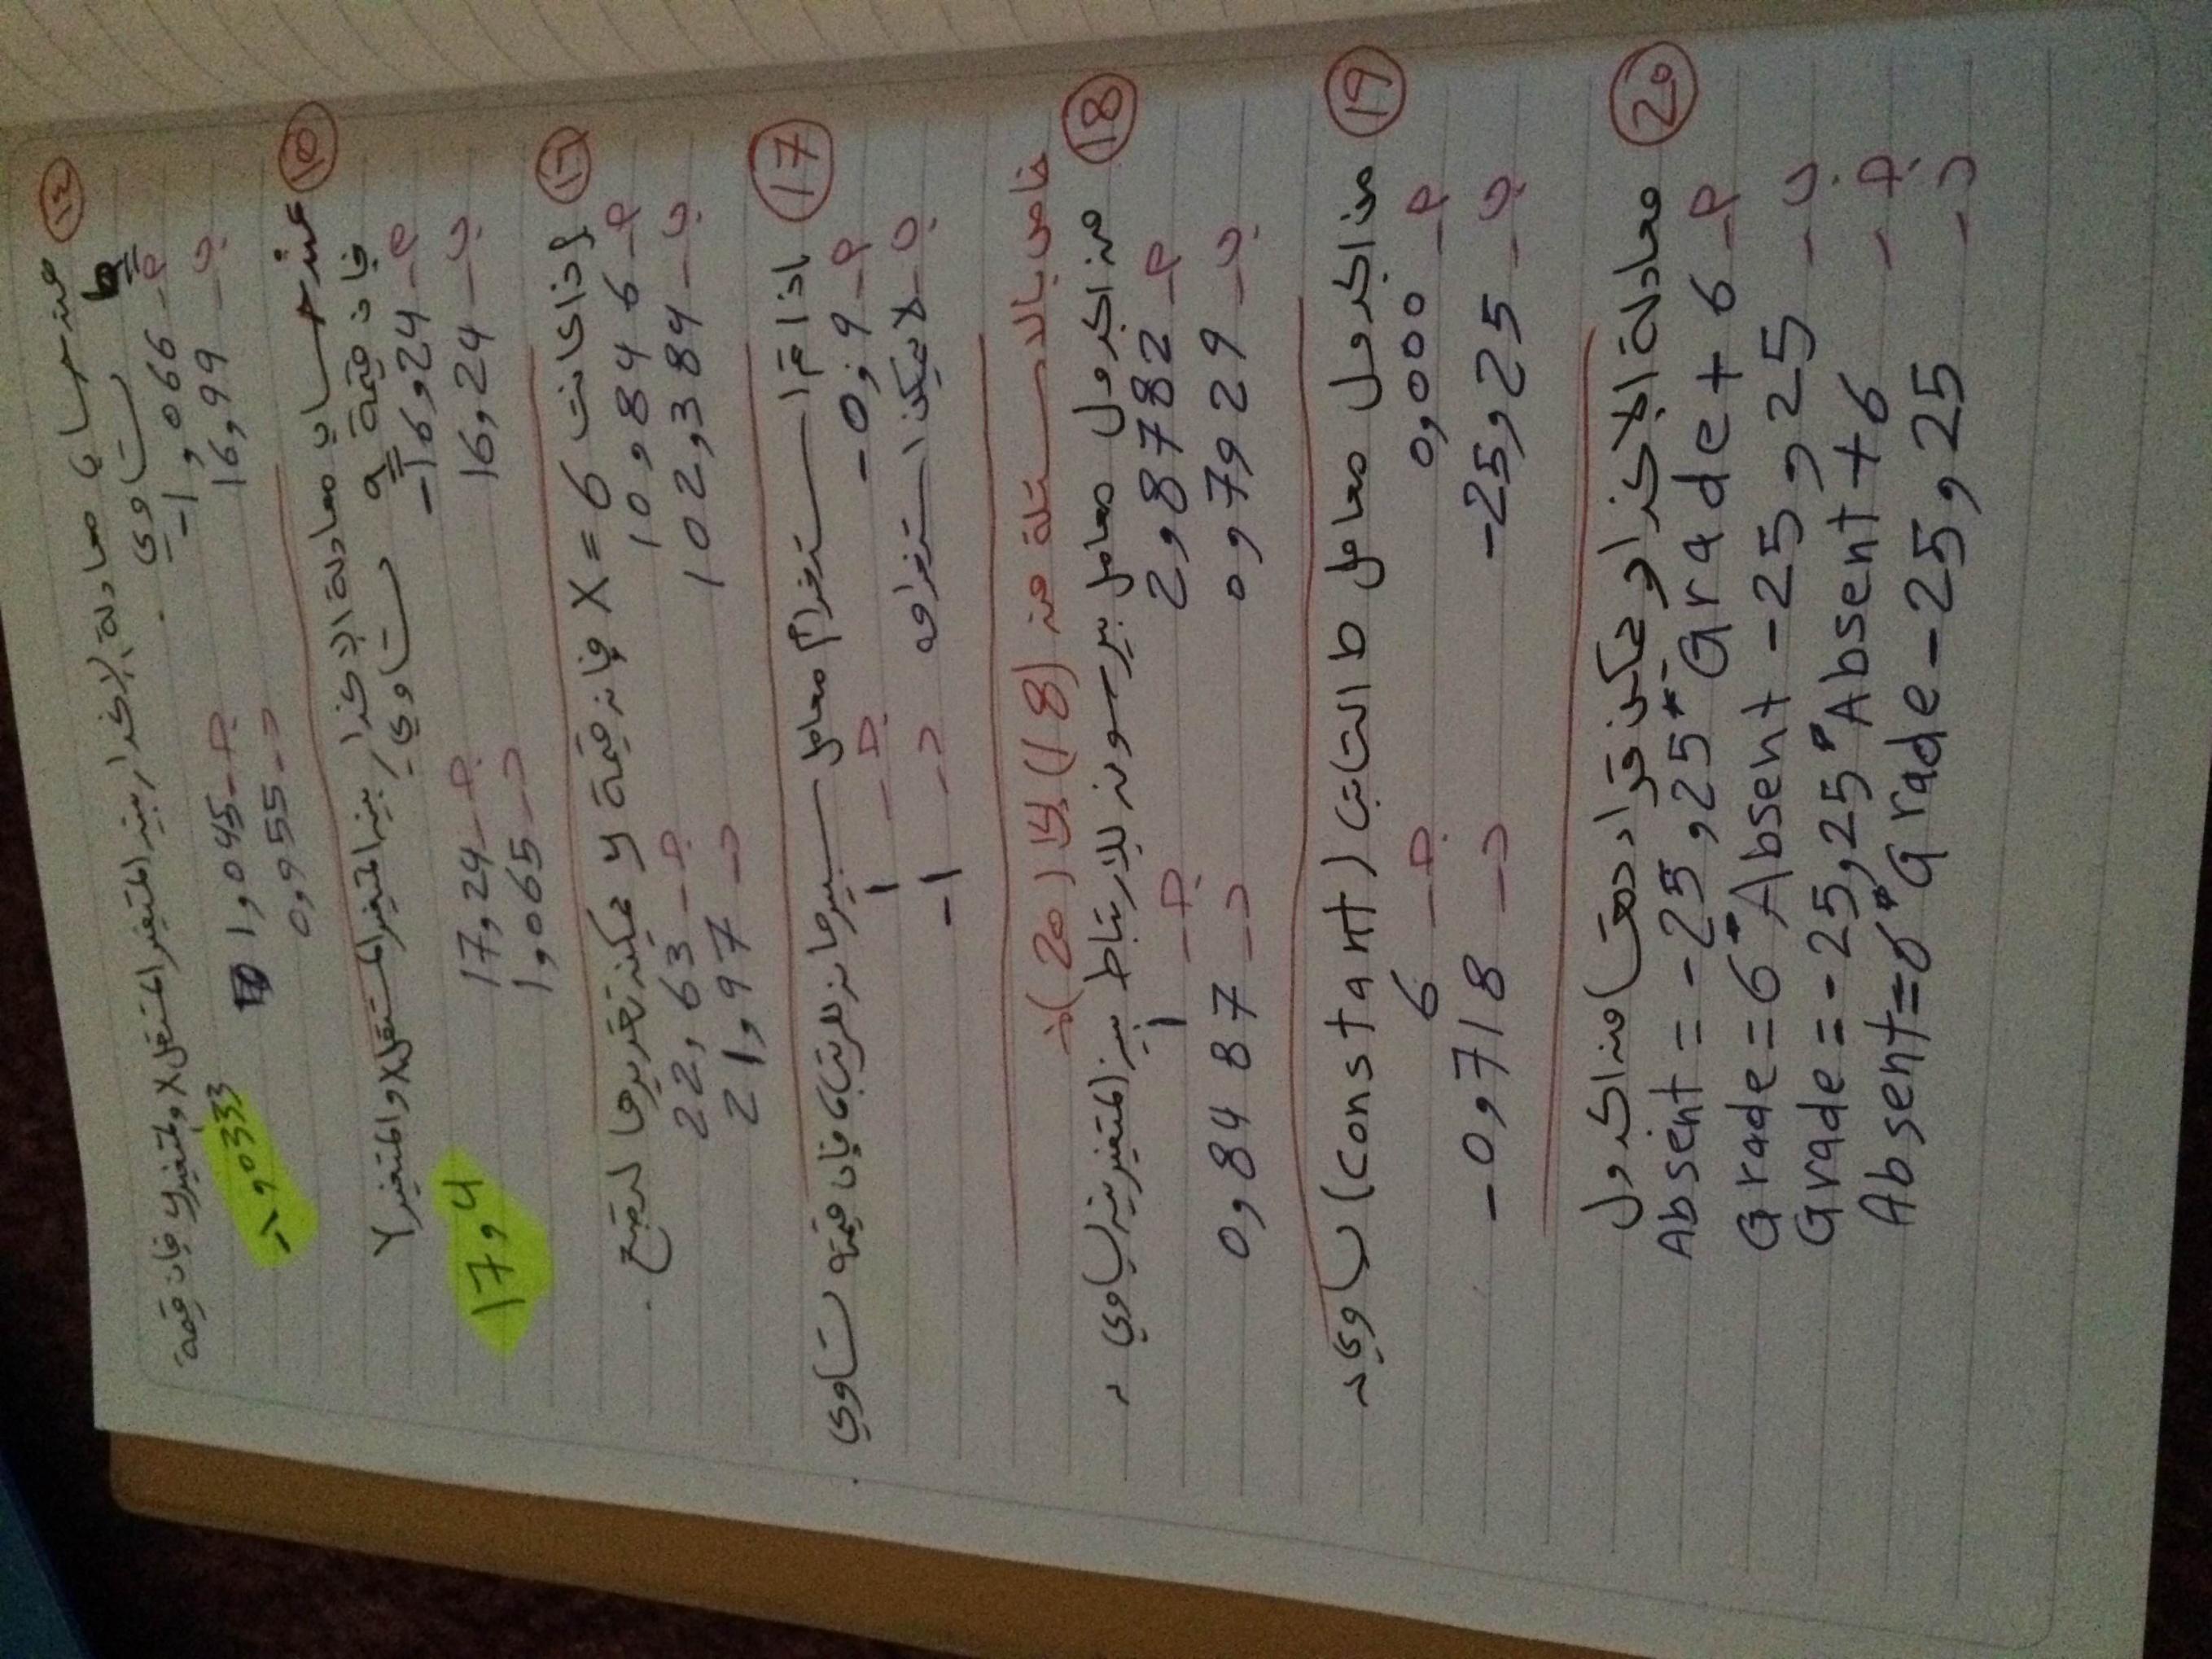 ١٤ عند حساب معادلة الانحدار بين المتغير المستقل X والمتغير y فان قيمة
b تساوي .
أ- -1,066 ج- 1,045
ب- 16,99 د- 0,955
-1,0333
١٥ عند حساب معادلة الانحدار بين المتغير المستقل X والمتغير Y
فان قيمة a تساوي
أ- -16,24 ج- 17,24
ب- 16,24 د- 1,065
17,4
١٦ إذا كانت X = 6 فإن قيمة y يمكن تقديرها لتصبح .
أ- 10,846 ج- 22,63
ب- 102,384 د- 21,97
17 اذا تم استخدام معامل سبيرمان للرتب فإن قيمته تساوي .
أ- -0,9 ج- 1
ب- لا يمكن استخدامه د- -1
خاص بالاسئلة من (18) إلى (20):
18 من الجدول معامل بيرسون للارتباط بين المتغيرين يساوي :
أ- 2,8782 ج- 1
ب- 0,7929 د- 0,8487
19 من الجدول معامل b الثابت (constant) يساوي:
أ- 0,000 ج- 6
ب- -25,25 د- -0,718
20 معادلة الانحدار يمكن قراءتها من الجدول
أ- Absent = -25,25* Grade + 6
ب- Grade = 6* Absent -25,25
ج- Grade = -25,25* Absent + 6
د- Absent = 6* Grade -25,25